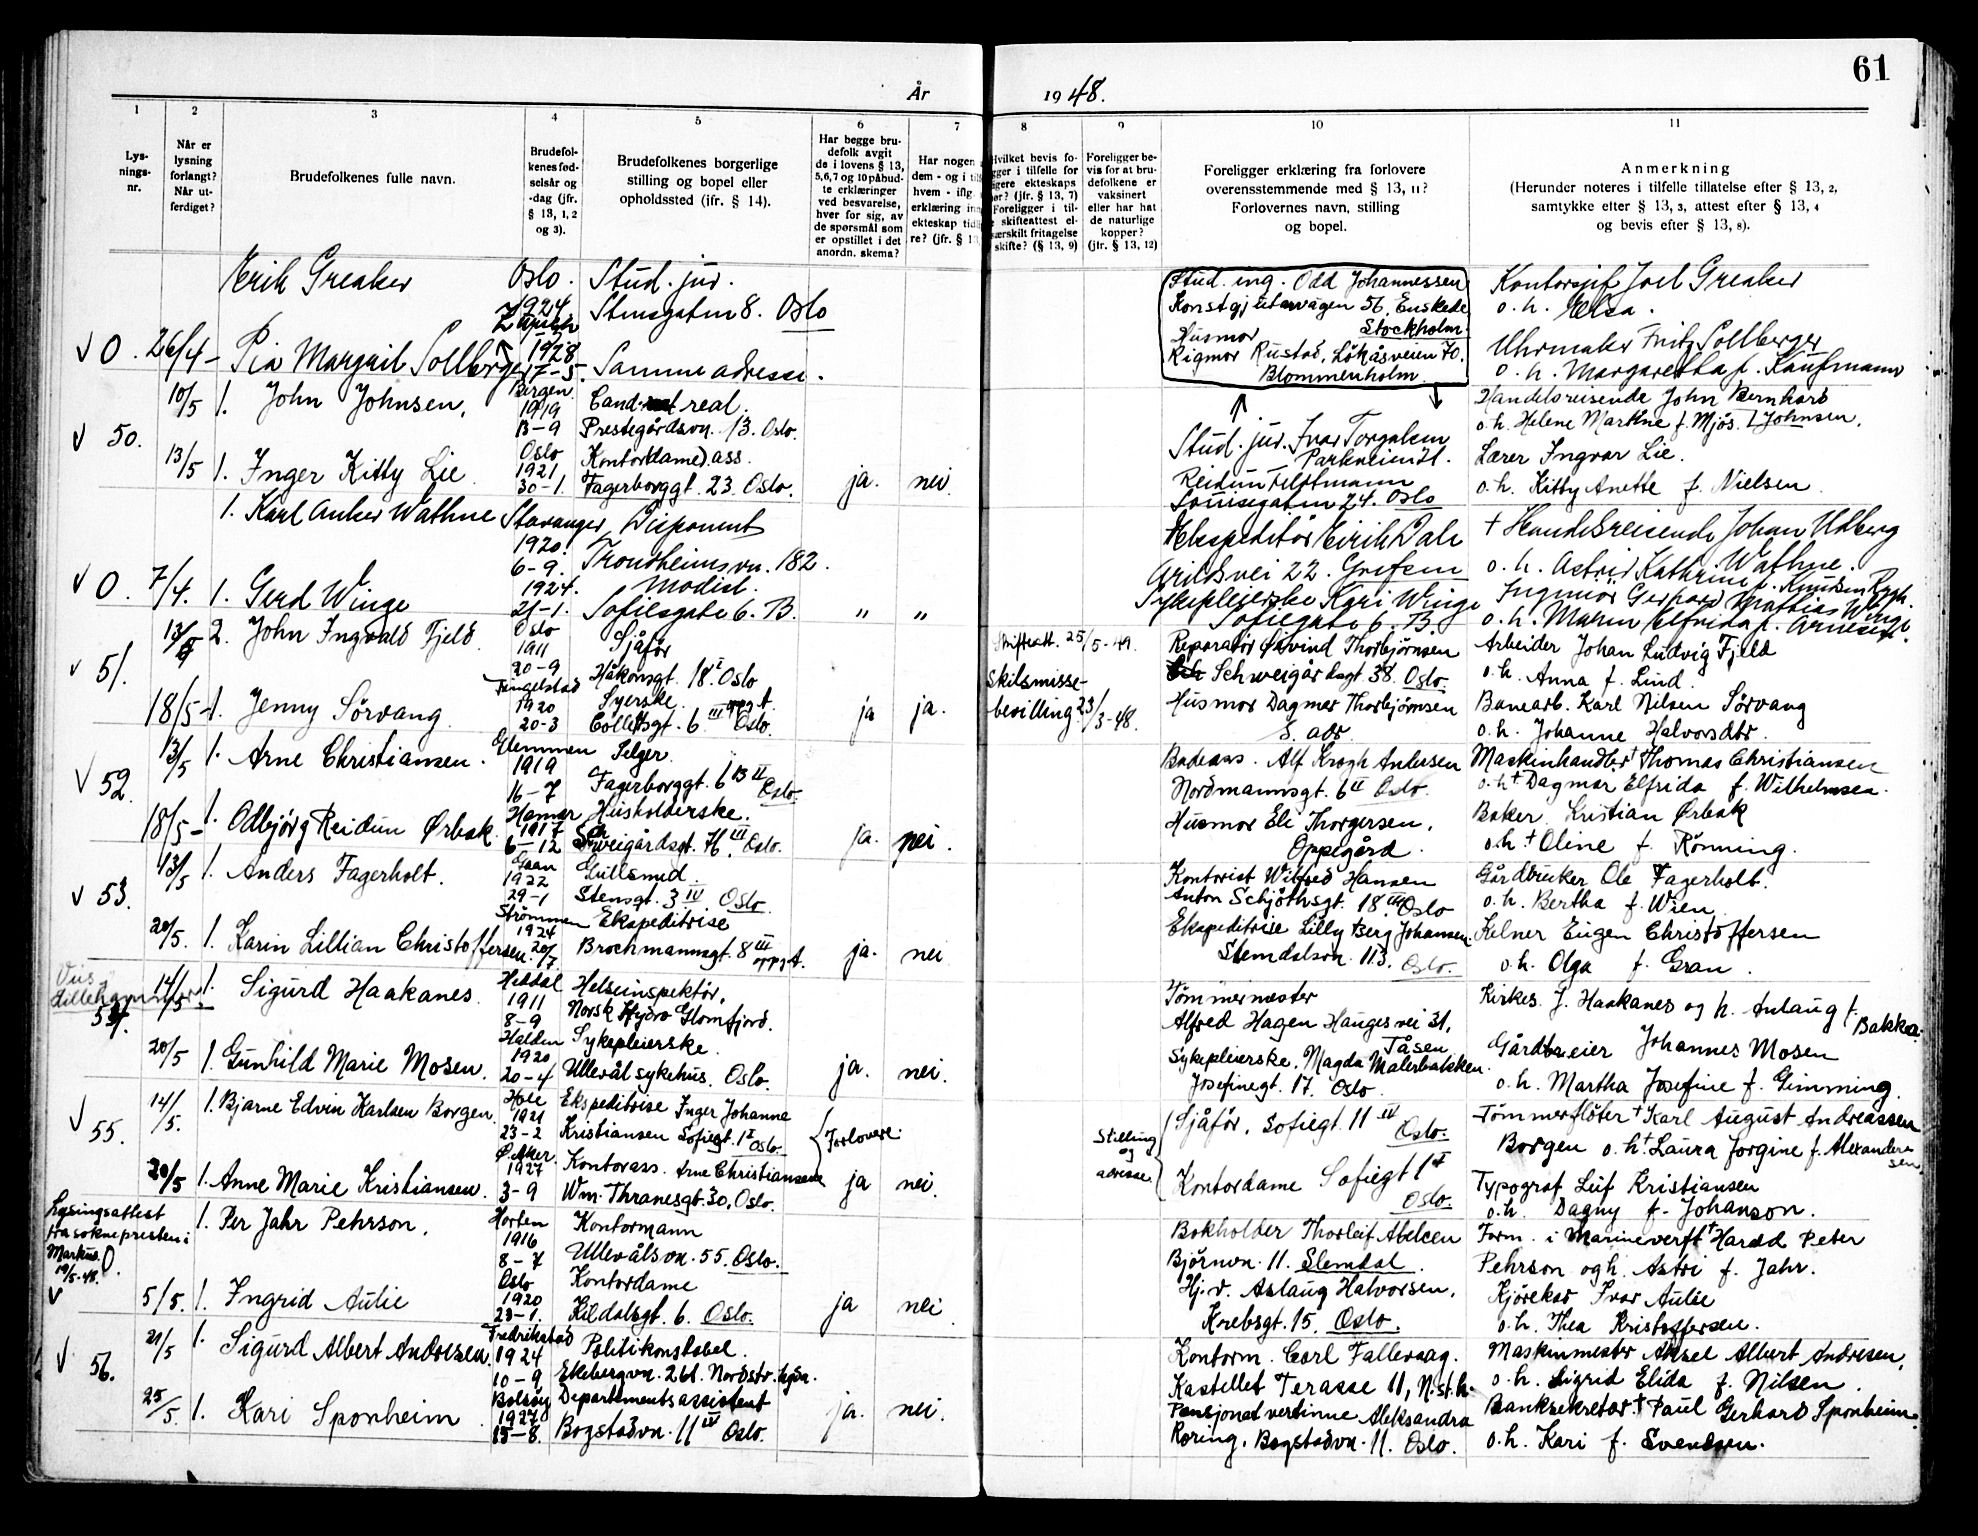 61
År 1948.
1 2 3 4 5 6 7 8 9 10 11
Lys-
nings-
nr.
Når er
lysning
forlangt?
Når ut-
ferdiget?
Brudefolkenes fulle navn.
Brudefol-
kenes fød-
selsår og
-dag (jfr.
§ 13, 1, 2
og 3).
Brudefolkenes borgerlige
stilling og bopel eller
opholdssted (ifr. § 14).
Har begge bru-
defolk avgit
de i lovens § 13,
5,6,7 og 10 påbud-
te erklæringer
ved besvarelse,
hver for sig, av
de spørsmål som
er opstillet i det
anordn. skema?
Har nogen
dem - og i til
hvem - iflg
erklæring in
ekteskap tid
re? (jfr. § 13
Hvilket bevis fo-
gger i tilfelle for
igere ekteskaps
ør? (jfr. § 13, 7)
Foreligger i til-
skifteattest el-
særskilt fritagelse
skifte? (§ 13, 9)
Foreligger be-
vis for at bru-
defolkene er
vaksinert
eller har hat
de naturlige
kopper?
(jfr. § 13, 12)
Foreligger erklæring fra forlovere
overensstemmende med § 13, 11?
Forlovernes navn, stilling
og bopel.
Anmerkning
(Herunder noteres i tilfelle tillatelse efter § 13, 2,
samtykke efter § 13, 3, attest efter § 13, 4
og bevis efter § 13, 8).
Erik Greaker Oslo. Stud. jur.
1924 Stensgaten 8. Oslo
Stud. ing. Odd Johannessen
Konstgjutarvägen 56, Enskede
Stockholm.
Husmor
Rigmor Rustad, Løkåsveien 70.
Blommenholm
Kontorsjef Joel Greaker
o. h. Elsa.
√ 0. 26/4 - Pia Margrit Sollberger Zürich
1928
17-5. Samme adresse.
Uhrmaker Fritz Sollberger
o. h. Margaretha f. Kaufmann
10/5 1. John Johnsen, Bergen
1919
13-9 Cand. real.
Prestegårdsvn. 13. Oslo.
Stud. jur. Ivar Torgalsen
Parkveien 71.
Handelsreisende John Bernhard
o. h. Helene Marthne f. Mjøs. [Johnsen.
√ 50.
13/5 1. Inger Kitty Lie Oslo
1921
30-1. Kontordame). ass.
Fagerborggt. 23. Oslo. ja. nei.
Reidun Feltmann
Louisegaten 24. Oslo
Lærer Ingvar Lie.
o. h. Kitty Anette f. Nielsen.
1. Karl Anker Wathne Stavanger
1920.
6-9. Disponent
Trondheimsvn. 182.
Ekspeditør Eirik Dale
Arildsvei 22. Grefsen
† Handelsreisende Johan Udberg
Wathne.
o. h. Astrid Kathrine f. Knudsen Rygh.
√ 0. 7/4. 1. Gerd Winge 1924.
21-1. Modist.
Sofiesgate 6. B. " "
Sykepleierske Kari Winge
Sofiegate 6. B.
Ingeniør Gerhard Mathias Winge
o. h. Maren Elfrida f. Arnesen.
√ 51.
13/5 2. John Ingvald Fjeld. Oslo
1911
20-9 Sjåfør
Håkonsgt. 18 I Oslo
Skifteatt. 25/5-49.
Reparatør Øivind Thorbjørnsen
Schweigårdsgt. 38. Oslo.
Arbeider Johan Ludvig Fjeld
o. h. Anna f. Lind.
18/5 - 1. Jenny Sörvang. Tingelstad
1920
20-3 Syerske
Colletsgt. 6 III oppg. t. Oslo. ja ja.
skilsmisse-
bevilling 23/3-48.
Husmor Dagmar Thorbjørnsen
S. adr.
Banearb. Karl Nilsen Sörvang
o. h. Johanne Halvorsdtr.
√ 52.
13/5 1. Arne Christiansen. Glemmen
1919
16-7 Selger.
Fagerborggt. 6 B II Oslo.
Badeass. Alf Krogh Antensen
Nordmannsgt. 6 II Oslo.
Maskinhandler † Thomas Christiansen
o. h † Dagmar Elfrida f. Wilhelmsen.
18/5 - 1. Odbjörg Reidun Ørbak. Hamar
1917
6-12 Husholderske.
Schweigårdsgt. 76 III Oslo. ja. nei.
Husmor Eli Thorgersen.
Oppegård.
Baker Kristian Ørbak
o. h † Oline f. Rønning.
√ 53.
13/5 1. Anders Fagerholt. Gran
1922
29-1 Gullsmed.
Stensgt. 3 IV Oslo.
Kontorist Wilfred Hansen
Anton Schjøthsgt. 18 III Oslo
Gårdbruker Ole Fagerholt.
o. h. Bertha f. Wien.
20/5. 1. Karin Lillian Christoffersen. Strømmen
1924
20/7 Ekspeditrise
Brochmannsgt. 8 III oppg. t. ja. nei.
Ekspeditrise Lilly Berg Johansen.
Slemdalsvn. 113. Oslo.
Kelner Eugen Christoffersen
o. h. Olga f. Gran.
Vies
Lillehammer.
54.
14/5 1. Sigurd Haakanes. Heddal
1911
8-9 Helseinspektør.
Norsk Hydro Glomfjord.
Tømmermester
Alfred Hagen Hauges vei 31,
Tåsen
Kirkes. J. Haakanes og h. Aslaug f.
Bakka.
20/5 1. Gunhild Marie Mosen. Halden
1920
20-4 Sykepleierske.
Ullevål sykehus. Oslo. ja. nei.
Sykepleierske. Magda Malerbakken.
Josefinegt. 17. Oslo.
Gårdbr.eier Johannes Mosen
o. h. Martha Josefine f. Gimming.
√ 55.
14/5. 1. Bjarne Edvin Karlsen Borgen. Hole
1921
23-2 Ekspeditrise Inger Johanne
Kristiansen Sofiegt. 1 I Oslo. { Forlovere.
Stilling
og
adresse
Sjåfør, Sofiegt. 11 IV
Oslo.
Tømmerfløter † Karl August Andreassen
Borgen o. h † Laura Jorgine f. Alexander-
sen.
20/5 1. Anne Marie Kristiansen. Ø. Aker.
1927
3-9 Kontorass. Arne Christiansen
Wm. Thranesgt. 30, Oslo. ja nei.
Kontordame Sofiegt 1 I
Oslo.
Typograf Leif Kristiansen
o. h. Dagny f. Johanson.
Lysingsattest
fra soknepresten i
Markus
19/5-48. 0.
√
1. Per Jahr Pehrson. Horten
1916
8-7 Kontormann
Ullevålsvn. 55. Oslo.
Bokholder Thorleif Abelsen
Björnvn. 11. Slemdal.
Form. i Marineverft † Harald Peter
Pehrson og h. Astri f. Jahr.
5/5. 1. Ingrid Aulie Oslo
1920
23-1. Kontordame
Kildalsgt. 6. Oslo. ja nei.
Hj.v. Aslaug Halvorsen.
Krebsgt. 15. Oslo.
Kjørekar Ivar Aulie
o. h. Thea Kristoffersen.
√ 56.
21/5 1. Sigurd Albert Andresen. Fredrikstad
1924
10-9 Politikonstabel.
Ekebergvn. 261. Nordstr. høgda.
Kontorm. Carl Fallevaag.
Kastellet Terasse 11, N.st.h.
Maskinmester Aksel Albert Andresen.
o. h. Sigrid Elida f. Nilsen.
25/5. 1. Kari Sponheim. Bolsøy
1927
15-8. Departementsassistent
Bogstadvn. 11 IV Oslo. ja. nei.
Pensjonatvertinne Aleksandra
Roring, Bogstadvn. 11. Oslo.
Banksekretær † Paul Gerhard Sponheim.
o. h. Kari f. Svendsen.